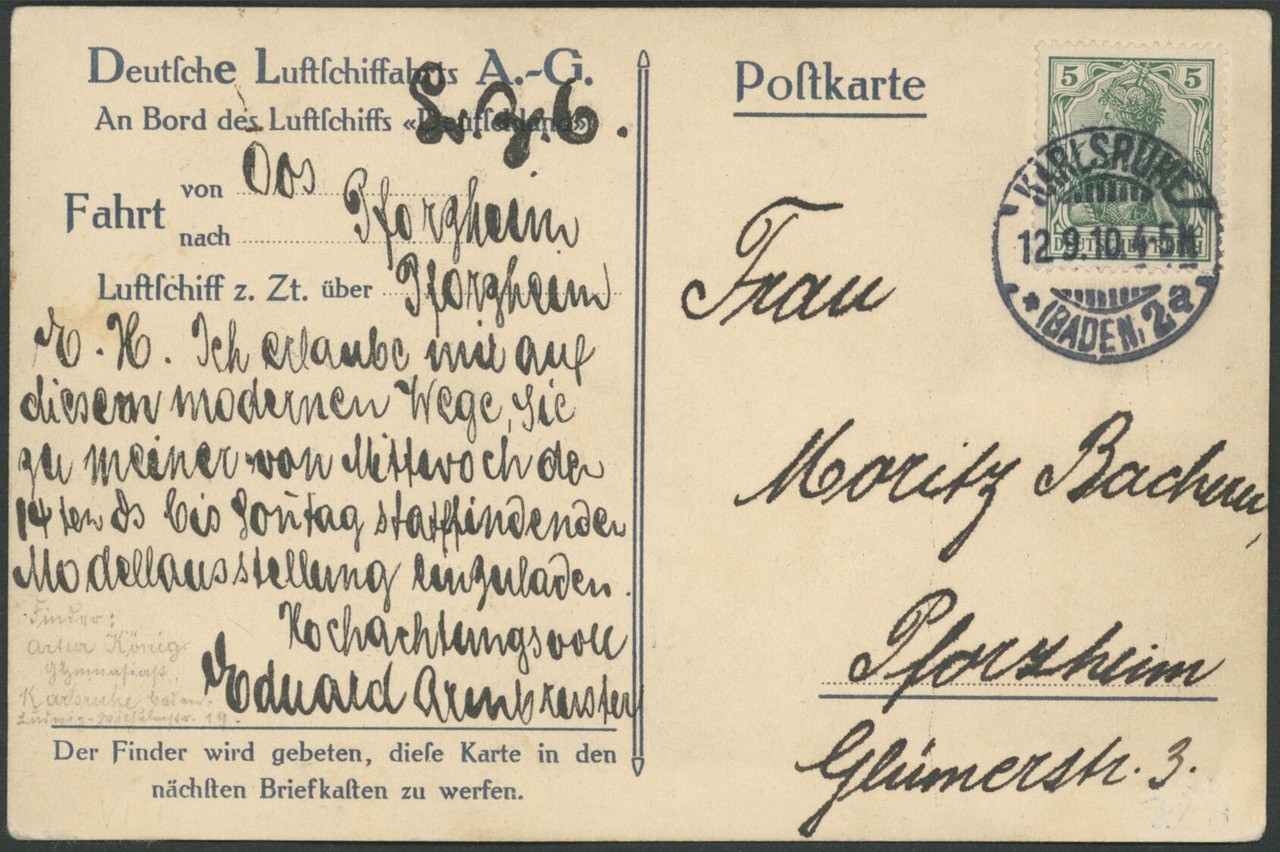 Deutſche Luftſchiffahrts A.-G.
An Bord des Luftſchiffs «Deutſchland»
L. Z. 6.
Fahrt von Oos
nach Pforzheim
Luftſchiff z. Zt. über Pforzheim
E. H. Ich erlaube mir auf
diesem modernen Wege, Sie
zu meiner von Mittwoch den
14ten ds bis Sontag stattfindenden
Modellausstellung einzuladen.
Hochachtungsvoll
Eduard Armbruster
Finder:
Artur König
Gymnasiast
Karlsruhe Baden.
Ludwig-Wilhelmstr. 19.
Der Finder wird gebeten, dieſe Karte in den
nächſten Briefkaſten zu werfen.
Poſtkarte
5 5
DEUTSCHES REICH
KARLSRUHE
12.9.10.4-5N
* (BADEN) 2a
Frau
Moritz
Pforzheim
Glümerstr. 3.